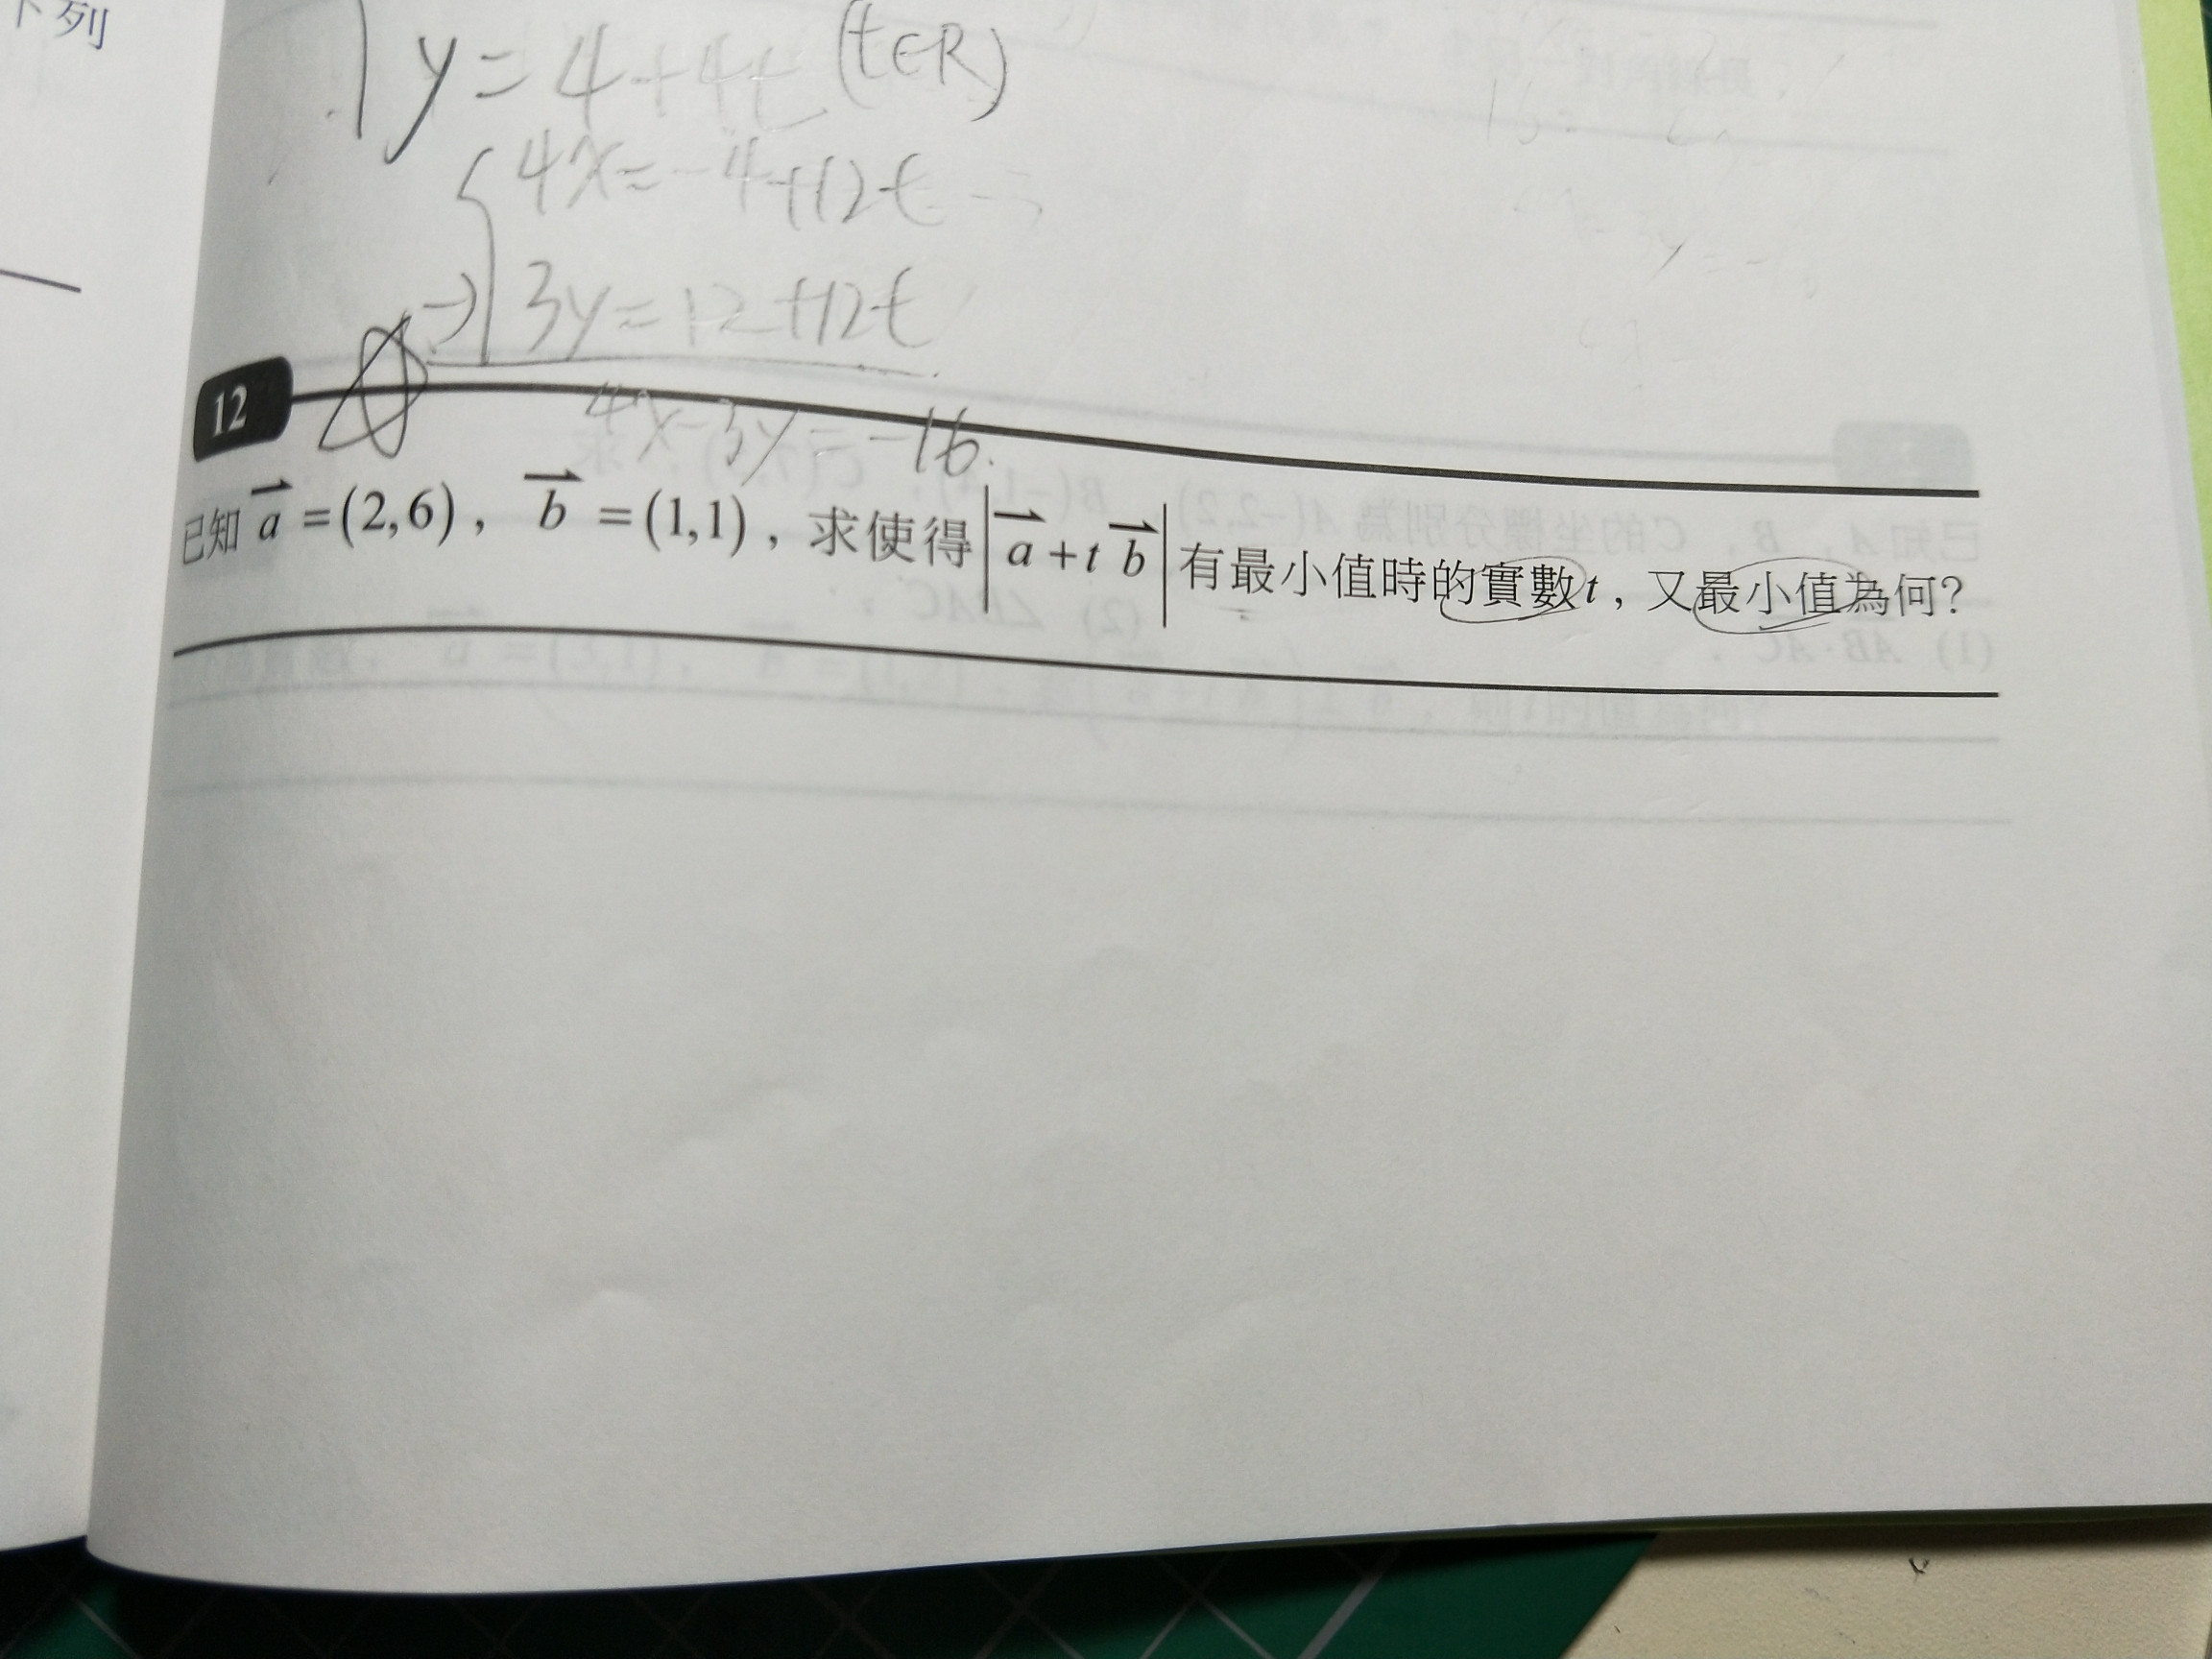 下列
y=4+4t (t∈R)
4x=-4+12t
→ 3y=12+12t
4x-3y=-16.
12
已知 a⃗ =(2,6)，b⃗ =(1,1)，求使得|a⃗ +t b⃗|有最小值時的實數t，又最小值為何?